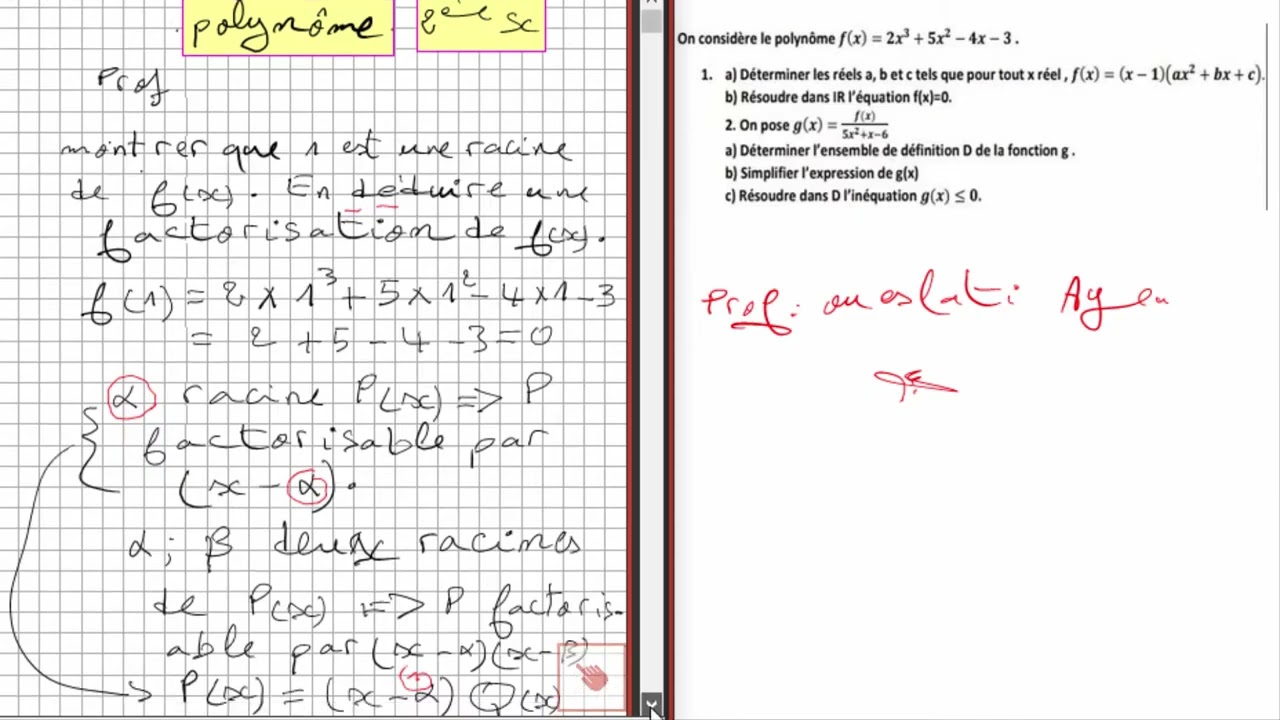 polynôme 2ème sc
Prof
montrer que 1 est une racine
de f(x). En déduire une
factorisation de f(x).
f(1) = 2 × 1³ + 5 × 1² - 4 × 1 - 3
= 2 + 5 - 4 - 3 = 0
α racine P(x) => P
factorisable par
(x - α).
α ; β deux racines
de P(x) => P factoris-
able par (x - α)(x - β)
P(x) = (x - α) Q(x)
On considère le polynôme f(x) = 2x³ + 5x² − 4x − 3 .
1. a) Déterminer les réels a, b et c tels que pour tout x réel , f(x) = (x − 1)(ax² + bx + c).
b) Résoudre dans IR l'équation f(x)=0.
2. On pose g(x) = f(x)/(5x²+x−6)
a) Déterminer l'ensemble de définition D de la fonction g .
b) Simplifier l'expression de g(x)
c) Résoudre dans D l'inéquation g(x) ≤ 0.
Prof: oueslati Aymen